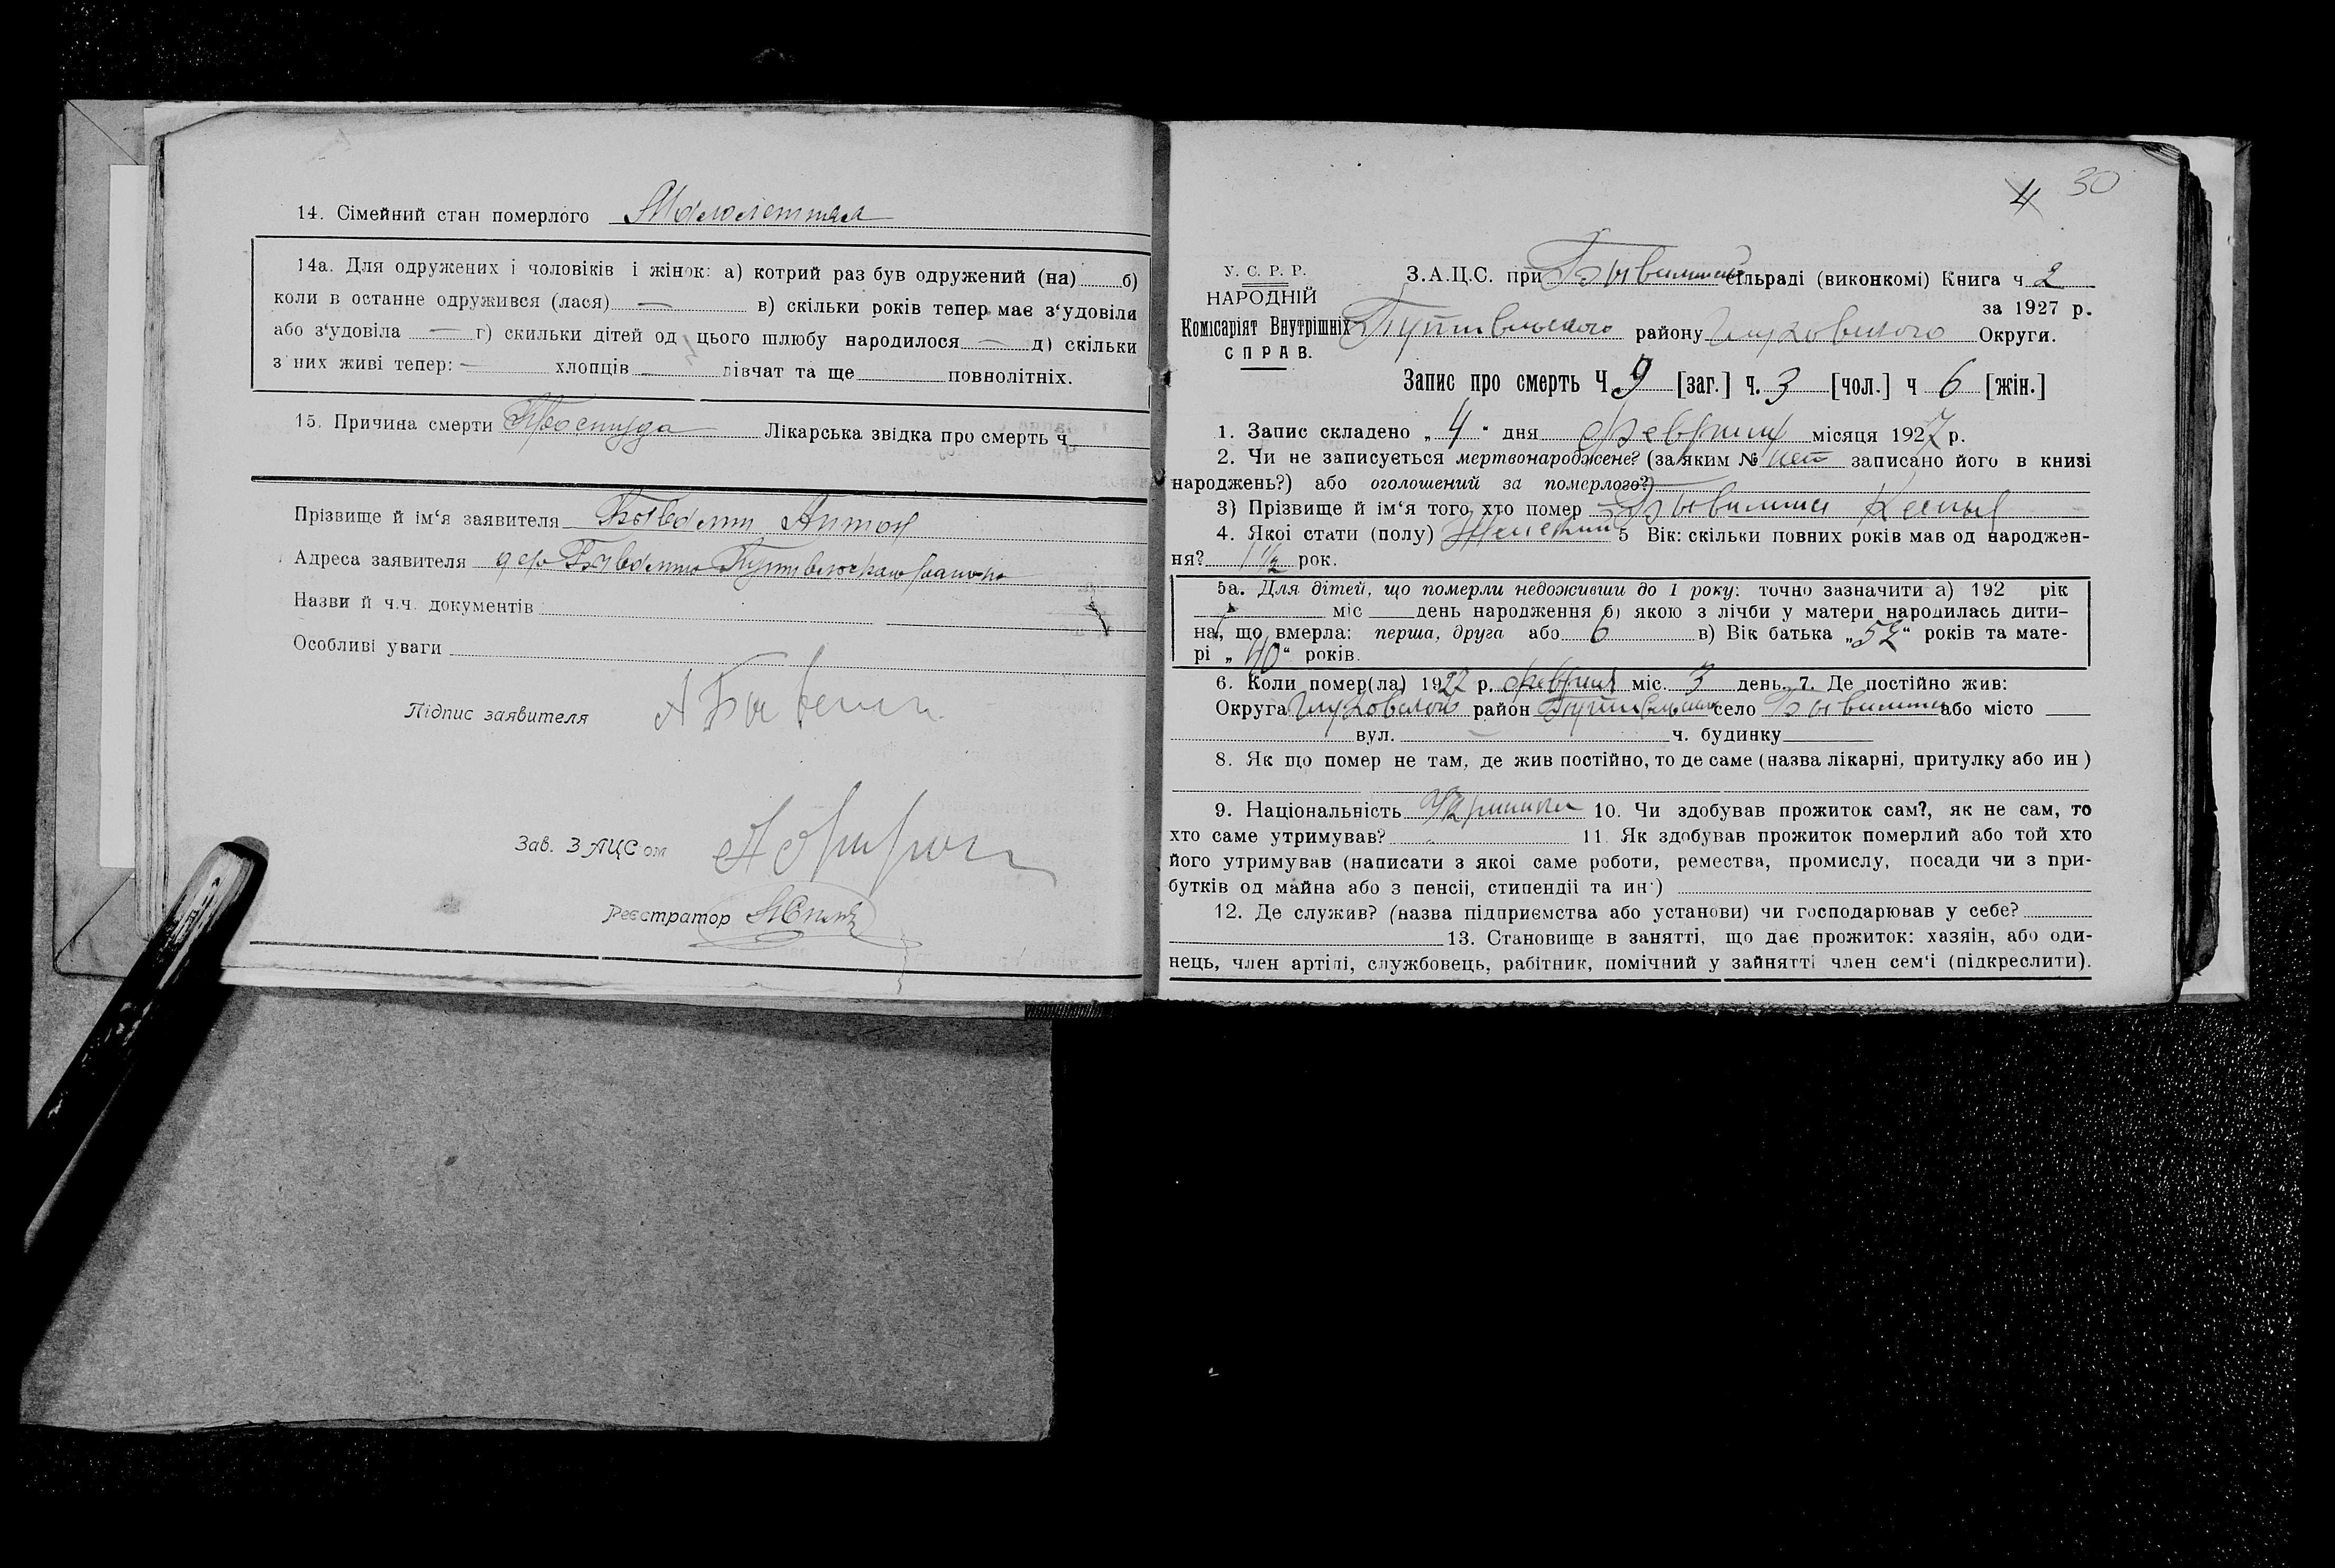 14. Сімейний стан померлого Малолетняя
14а. Для одружених і чоловіків і жінок: а) котрий раз був одружений (на) б)
коли в останне одружився (лася) — в) скільки років тепер має з‘удовіли
або з‘удовіла — г) скильки дітей од цього шлюбу народилося — д) скільки
з них живі тепер: — хлопців дівчат та ще повнолітніх.
15. Причина смерти Простуда Лікарська звідка про смерть ч
Прізвище й ім‘я заявителя Антон
Адреса заявителя района
Назви й ч.ч. документів
Особливі уваги
Підпис заявителя А
Зав. ЗАЦС ом
Реєстратор
4 30
У. С. Р. Р.
НАРОДНІЙ
Комісаріят Внутрішніх
СПРАВ.
З.А.Ц.С. при сільраді (виконкомі) Книга ч 2
за 1927 р.
Путивльского району Глуховского Округи.
Запис про смерть Ч 9 [заг.] ч. 3 [чол.] ч 6 [жін.]
1. Запис складено „4“ дня февраля місяця 1927 р.
2. Чи не записується мертвонароджене? (за яким № нет записано його в книзі
народжень?) або оголошений за померлого?)
3) Прізвище й ім‘я того хто помер
4. Якої стати (полу) Женский 5 Вік: скільки повних років мав од народжен-
ня? 1 1/2 рок.
5а. Для дітей, що померли недоживши до 1 року: точно зазначити а) 192 рік
міс день народження б) якою з лічби у матери народилась дити-
на, що вмерла: перша, друга або 6 в) Вік батька „52“ років та мате-
рі „40“ років.
6. Коли помер(ла) 1927 р. февраля міс. 3 день. 7. Де постійно жив:
Округа Глуховского район село або місто
вул. ч. будинку
8. Як що помер не там, де жив постійно, то де саме (назва лікарні, притулку або ин )
9. Національність 10. Чи здобував прожиток сам?, як не сам, то
хто саме утримував? 11. Як здобував прожиток померлий або той хто
його утримував (написати з якоі саме роботи, ремества, промислу, посади чи з при-
бутків од майна або з пенсії, стипендії та ин·)
12. Де служив? (назва підприємства або установи) чи господарював у себе?
13. Становище в занятті, що дає прожиток: хазяін, або оди-
нець, член артілі, службовець, рабітник, помічний у зайнятті член сем‘і (підкреслити).